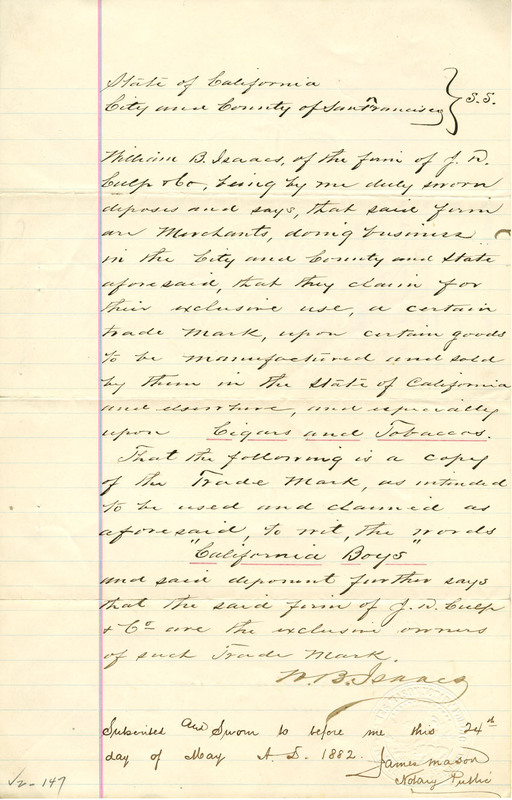 State of California
City and County of San Francisco } S.S.
William B. Isaacs, of the firm of J. D.
Culp & Co, being by me duly sworn
deposes and says, that said firm
are Merchants, doing business
in the City and County and State
aforesaid, that they claim for
their exclusive use, a certain
trade mark, upon certain goods
to be manufactured and sold
by them in the State of California
and elsewhere, and especially
upon Cigars and Tobaccos.
That the following is a copy
of the Trade Mark, as intended
to be used and claimed as
aforesaid, to wit, the words
"California Boys"
and said deponent further says
that the said firm of J. D. Culp
& Co are the exclusive owners
of such Trade Mark.
W. B. Isaacs
Subscribed and Sworn to before me this 24th
day of May A. D. 1882.
James Mason
Notary Public
147